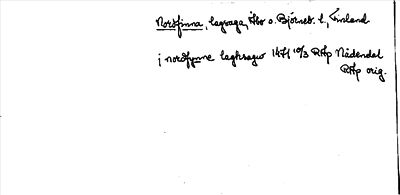 Nordfinna, lagsaga, Åbo o. Björneb. l., Finland
i nordfynne laghsagw 1471 10/3 RAp Nådendal
RAp orig.